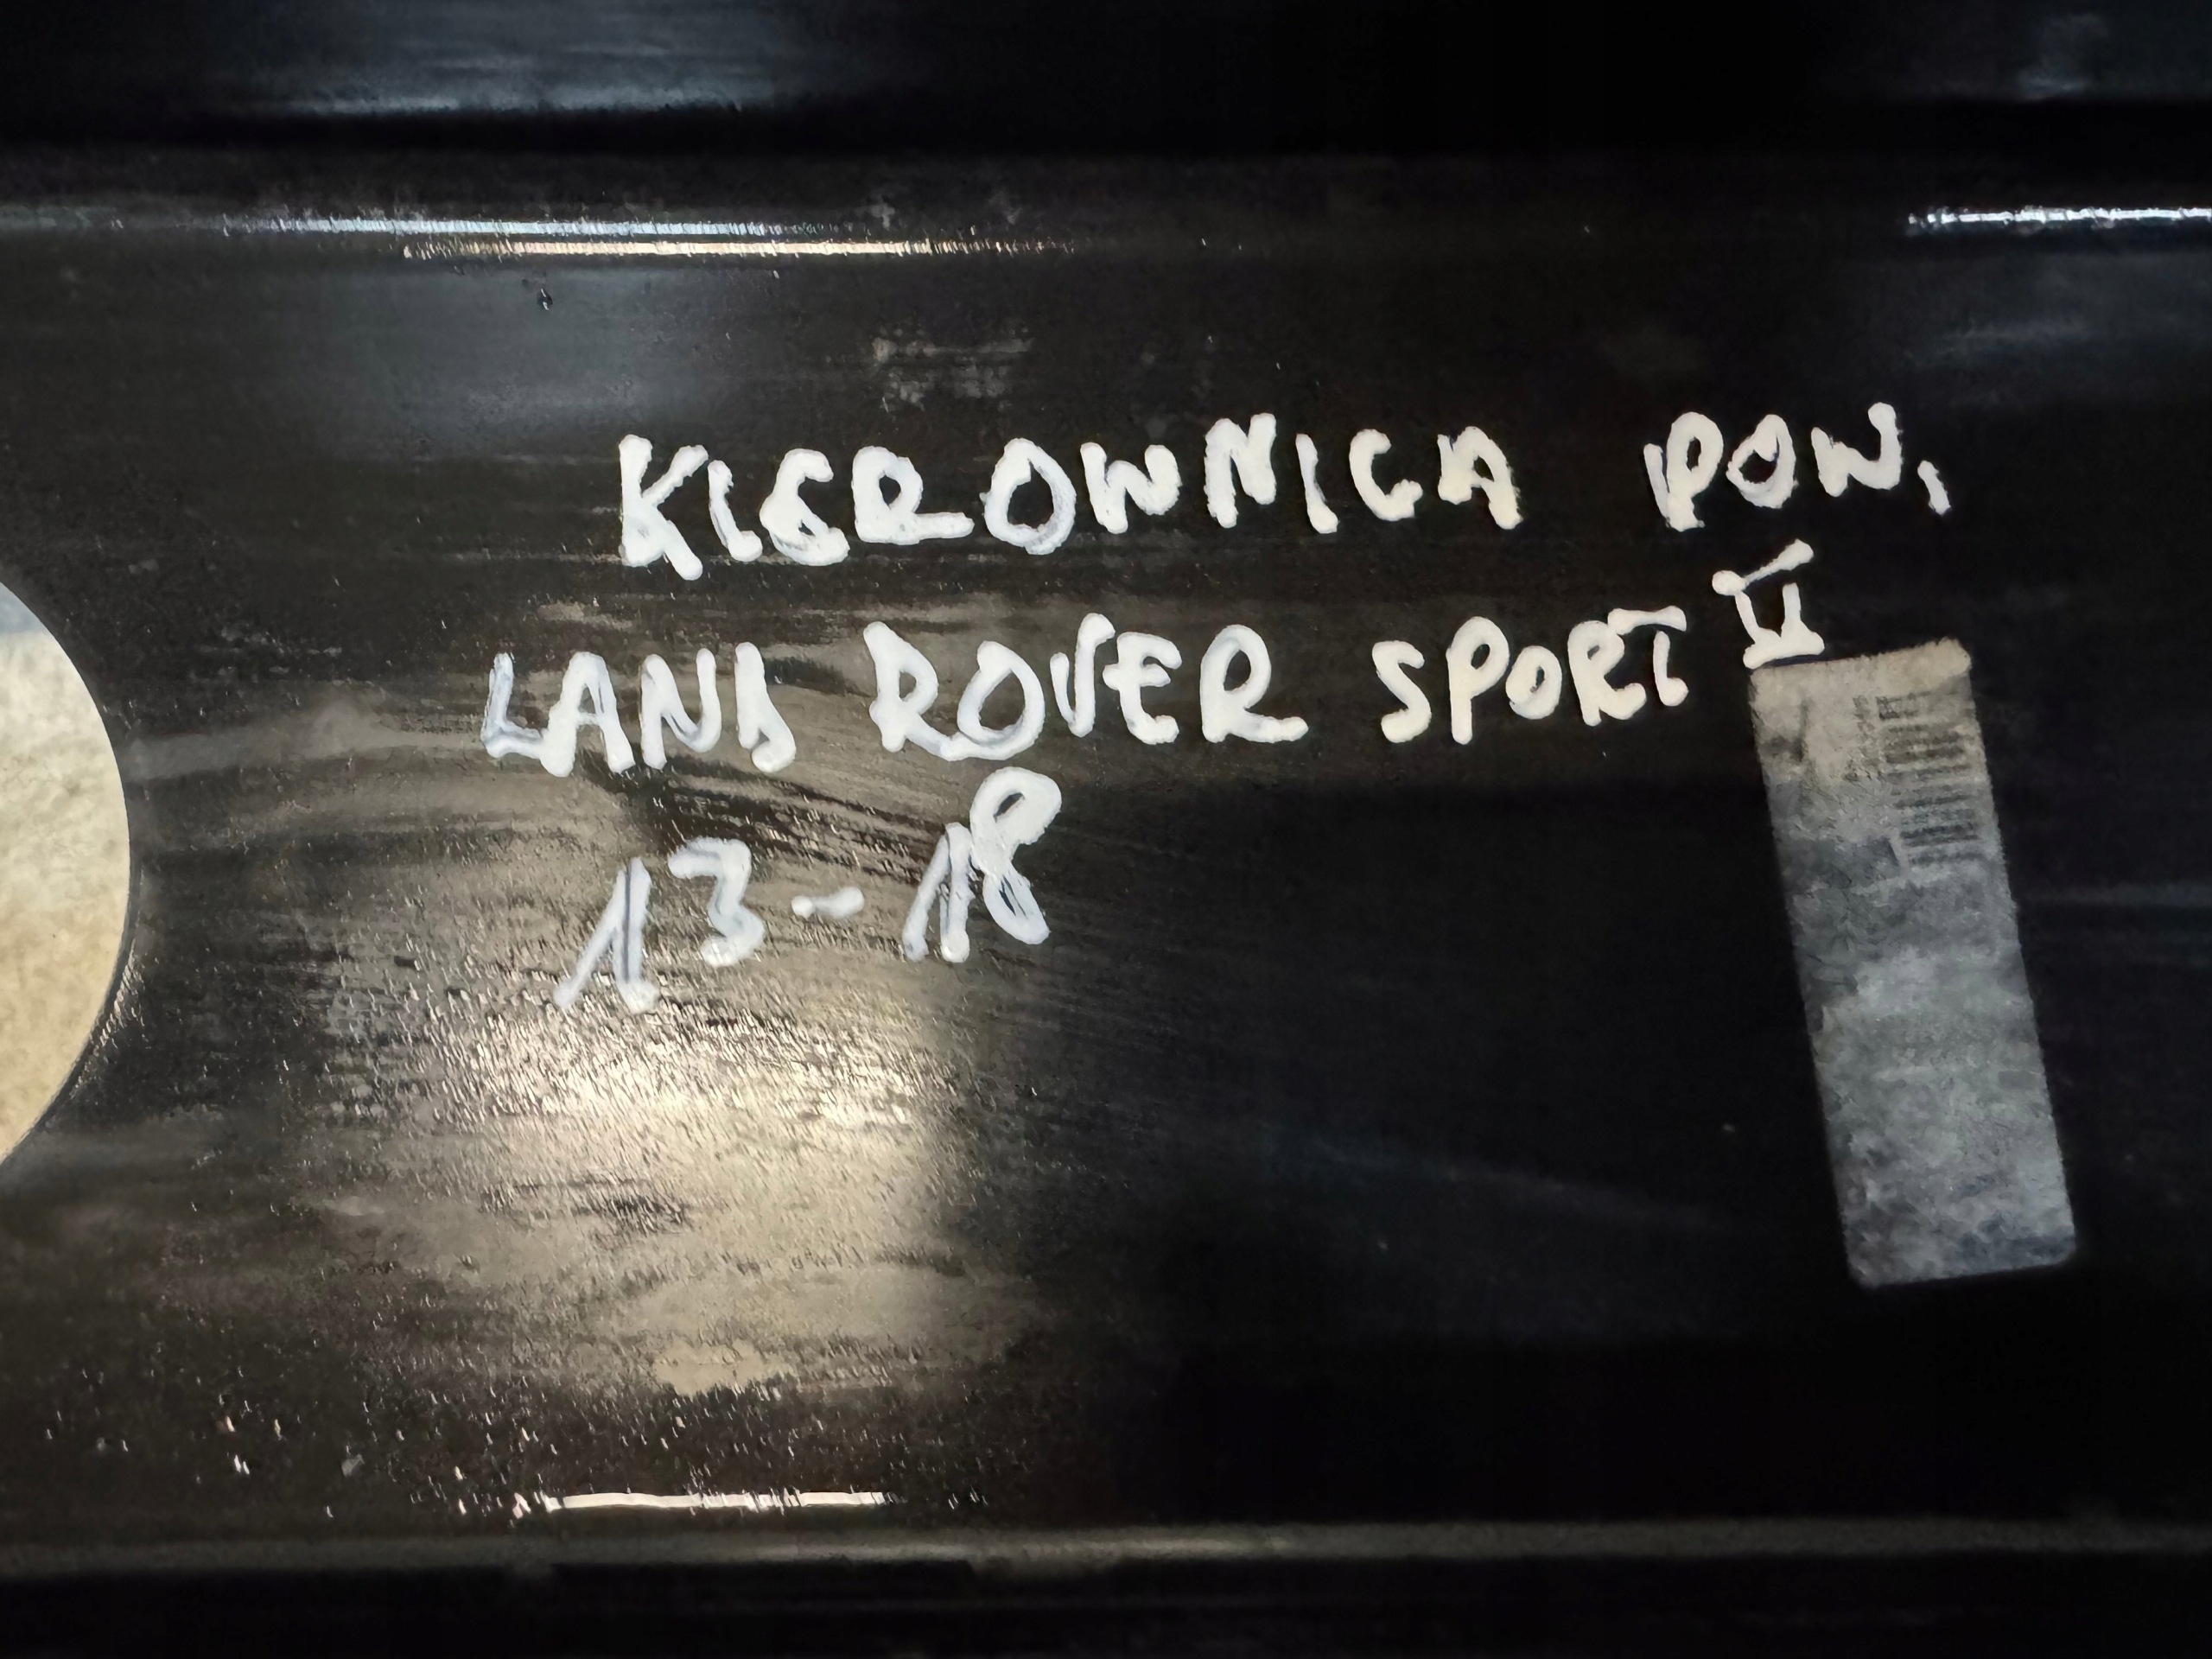 KIEROWNICA POW,
LAND ROVER SPORT II
13-18